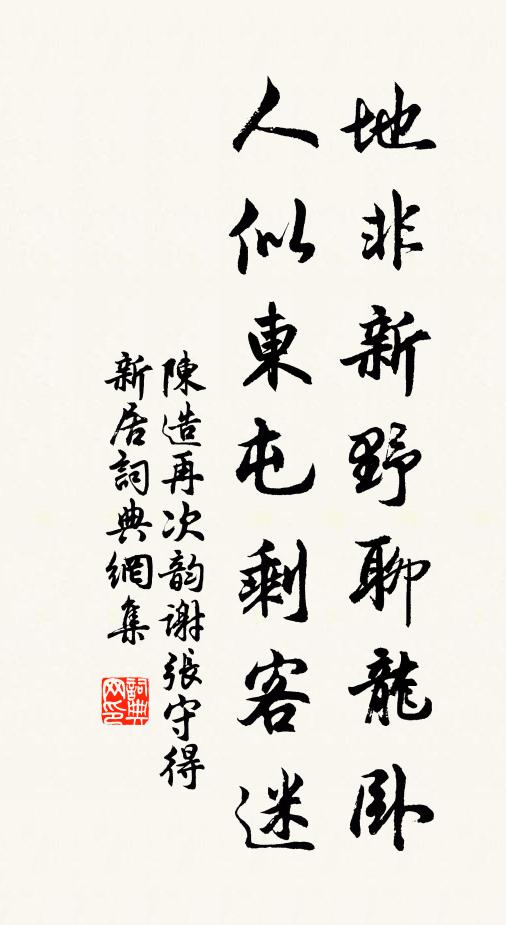 地非新野聊龍卧
人似東屯剩客迷
陳造再次韵謝張守得
新居詞典網集
詞典
网印